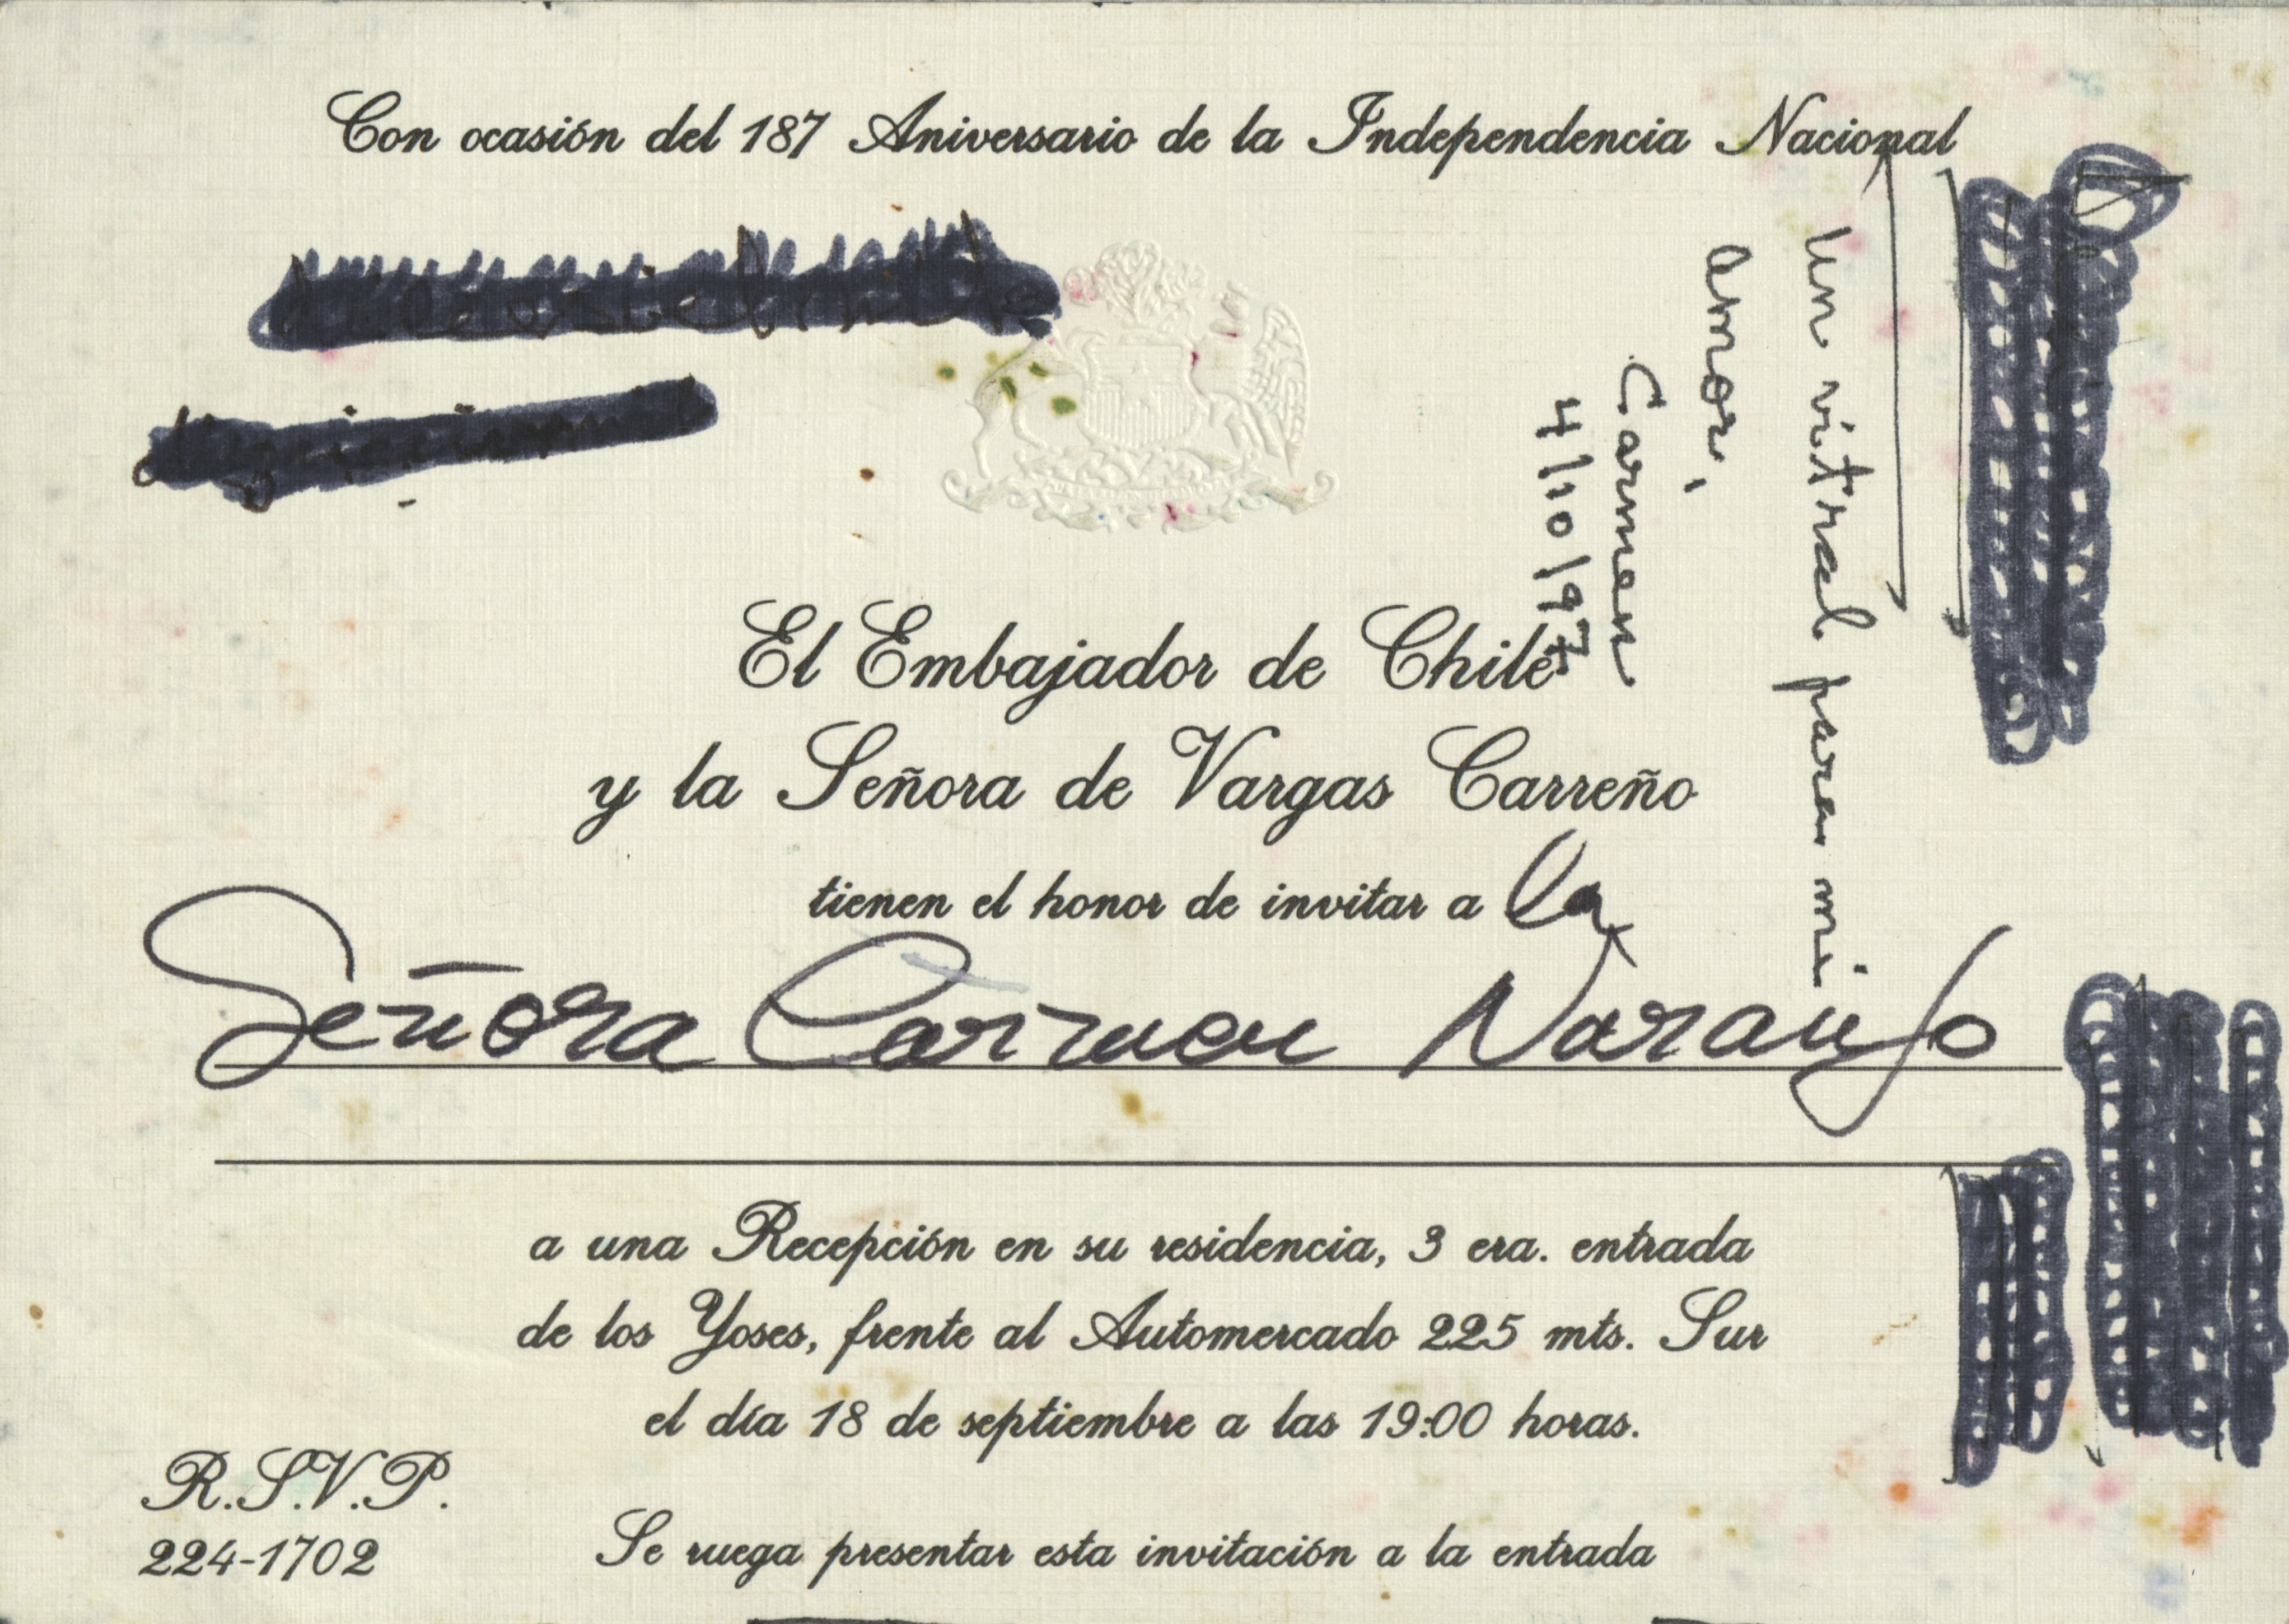 Con ocasión del 187 Aniversario de la Independencia Nacional
El Embajador de Chile
y la Señora de Vargas Carreño
tienen el honor de invitar a la
Señora Carmen Naranjo
a una Recepción en su residencia, 3 era. entrada
de los Yoses, frente al Automercado 225 mts. Sur
el día 18 de septiembre a las 19:00 horas.
R.S.V.P.
224-1702
Se ruega presentar esta invitación a la entrada
un vitral para mi
amor,
Carmen
4/10/97